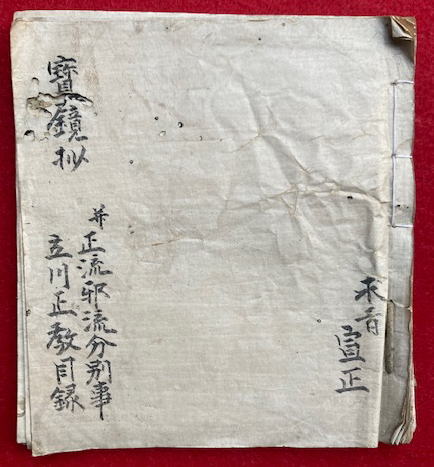 寳鏡抄
并正流邪流分別事
立川正教目録
宣正